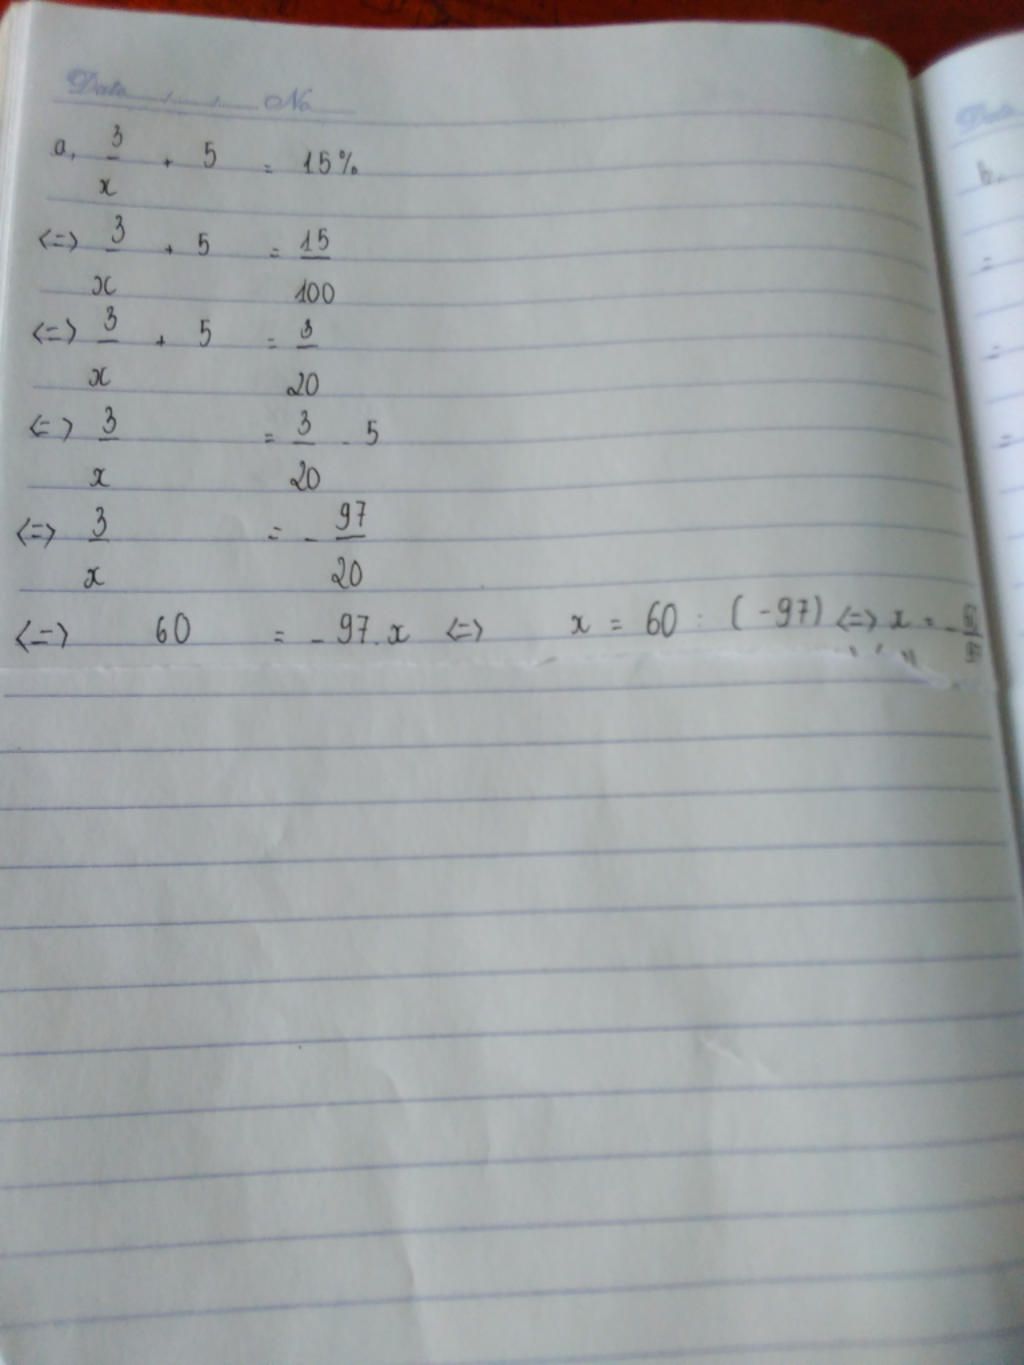 Date No
a, 3/x + 5 = 15%
<=> 3/x + 5 = 15/100
<=> 3/x + 5 = 3/20
<=> 3/x = 3/20 - 5
<=> 3/x = - 97/20
<=> 60 = - 97.x <=> x = 60 : (-97) <=> x = -
Date
b,
=
=
=